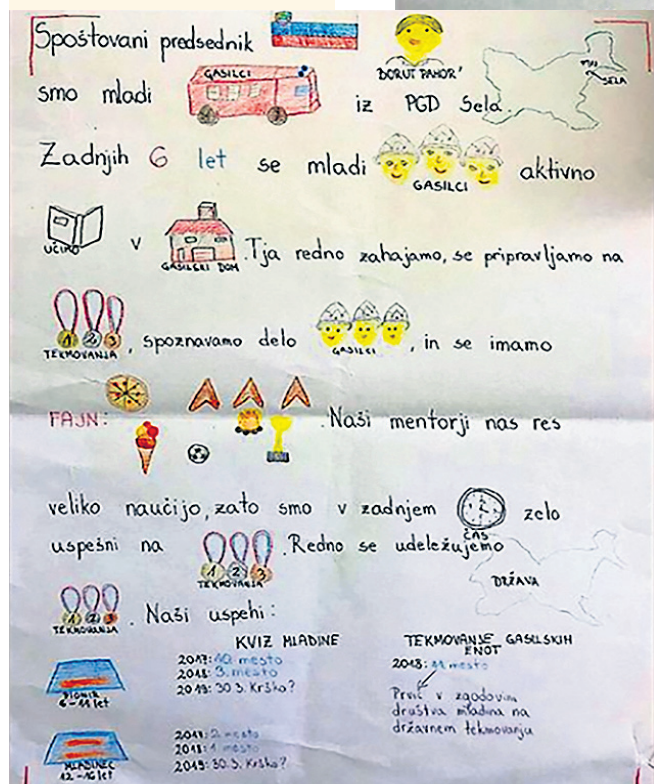 Spoštovani predsednik
BORUT PAHOR'
MI SELA
smo mladi GASILCI iz PGD Sela.
Zadnjih 6 let se mladi GASILCI aktivno
UČIMO v GASILSKI DOM . Tja redno zahajamo, se pripravljamo na
1 2 3 TEKMOVANJA , spoznavamo delo GASILCI , in se imamo
FAJN: . Naši mentorji nas res
veliko naučijo, zato smo v zadnjem ČAS zelo
uspešni na 1 2 3 TEKMOVANJA . Redno se udeležujemo
DRŽAVA
1 2 3 TEKMOVANJA . Naši uspehi:
KVIZ MLADINE
2017: 10. mesto
2018: 3. mesto
2019: 30.3. Krško?
PIONIR
6-11 let
2017: 2. mesto
2018: 1. mesto
2019: 30.3. Krško?
MLADINEC
12-16 let
TEKMOVANJE GASILSKIH
ENOT
2018: 11. mesto
Prvič v zgodovini
društva mladina na
državnem tekmovanju